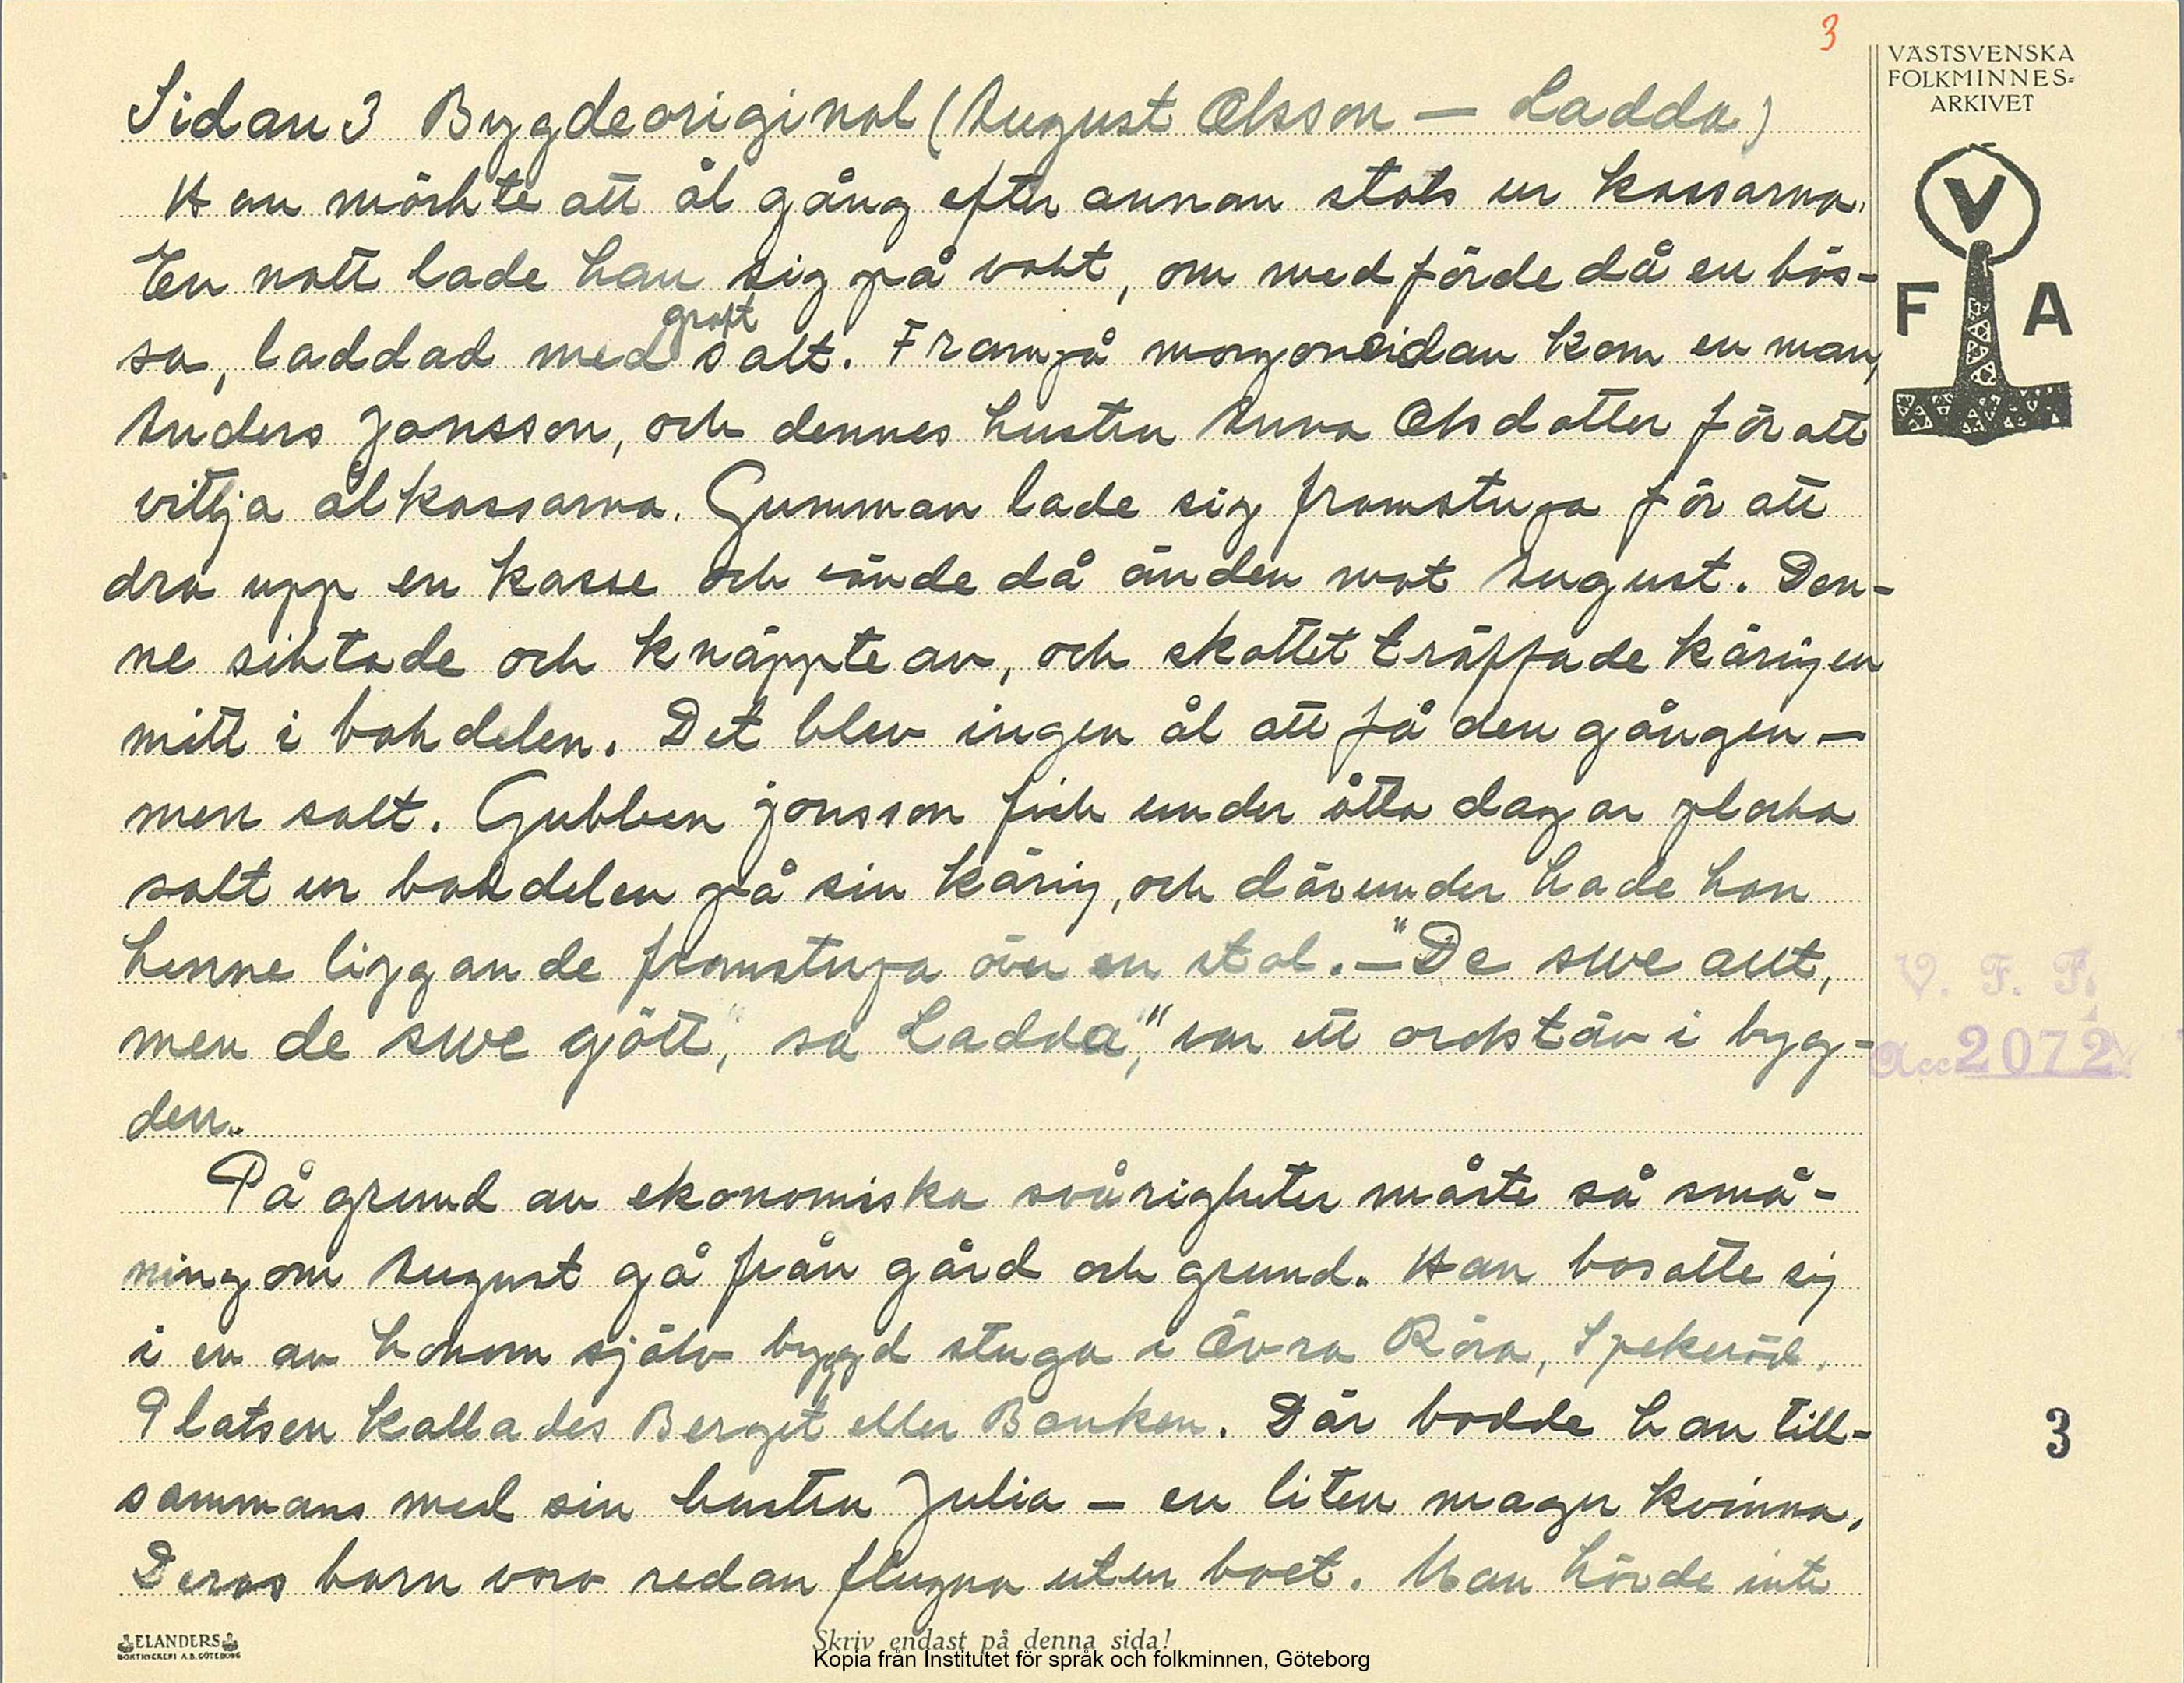 3
VÄSTSVENSKA
FOLKMINNES-
ARKIVET
V
F A
Sidan 3 Bygdeoriginal (August Olsson — Ladda)
Han märkte att ål gång efter annan stals ur kassarna.
En natt lade han sig på vakt, om medförde då en bös-
sa, laddad med groft salt. Frampå morgonsidan kom en man,
Anders Jonsson, och dennes hustru Anna Olsdotter för att
vittja ålkassarna. Gumman lade sig framstupa för att
dra upp en kasse och vände då änden mot August. Den-
ne siktade och knäppte av, och skottet träffade käringen
mitt i bakdelen. Det blev ingen ål att få den gången —
men salt. Gubben Jonsson fick under åtta dagar plocka
salt ur bakdelen på sin käring, och därunder hade han
henne liggande framstupa över en stol. — "De swe aut,
men de swe gjött," sa Ladda," var ett ordstäv i byg-
den.
På grund av ekonomiska svårigheter måste så små-
ningom August gå från gård och grund. Han bosatte sig
i en av honom själv byggd stuga i Övra Röra, Spekeröd.
Platsen kallades Berget eller Banken. Där bodde han till-
sammans med sin hustru Julia — en liten mager kvinna.
Deras barn voro redan flugna utur boet. Man hörde inte
V. F. F.
Acc 2072
3
ELANDERS
BOKTRYCKERI A.B. GÖTEBORG
Skriv endast på denna sida!
Kopia från Institutet för språk och folkminnen, Göteborg